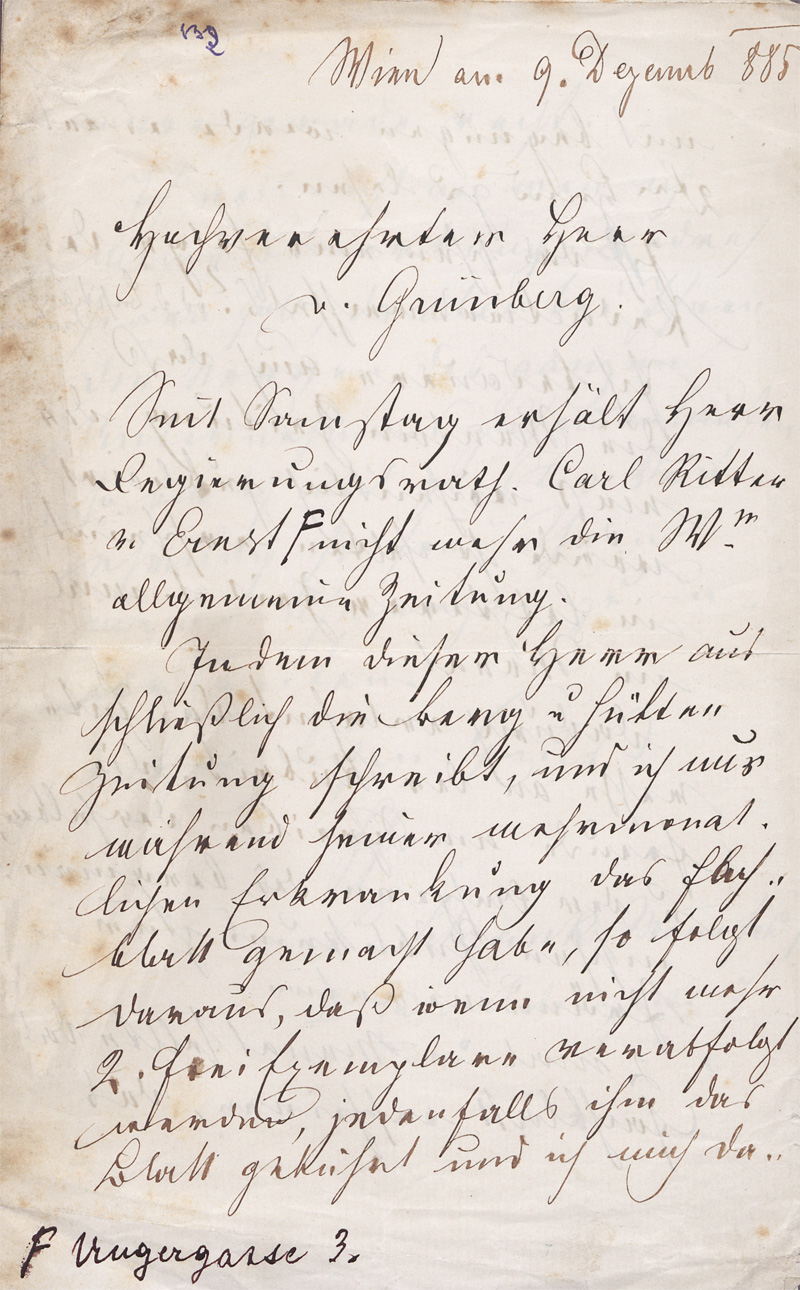 139
Wien am 9. Dezemb 885
Hochverehrter Herr
v. Grünberg.
Seit Samstag erhält Herr
Regierungsrath. Carl Ritter
v. Ernst F nicht mehr die Wr
allgemeine Zeitung.
Indem dieser Herr aus
schließlich die Berg u Hütten
Zeitung schreibt, und ich nur
während seiner mehrmonat.
lichen Erkrankung das Fach..
blatt gemacht habe, so folgt
daraus, daß wenn nicht mehr
2. FreiExemplare verabfolgt
werden, jedenfalls ihm das
Blatt gebührt und ich mich da..
F Ungergasse 3.